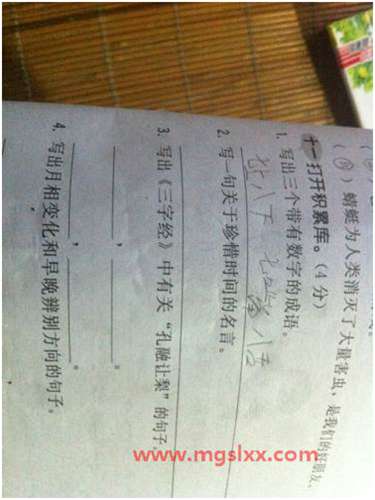 （@）蜻蜓为人类消灭了大量害虫，是我们的好朋友。
十一打开积累库。（4 分）
1. 写出三个带有数字的成语。
七 八
2. 写一句关于珍惜时间的名言。
3. 写出《三字经》中有关“孔融让梨”的句子。
，。
4. 写出月相变化和早晚辨别方向的句子。
www.mgslxx.com